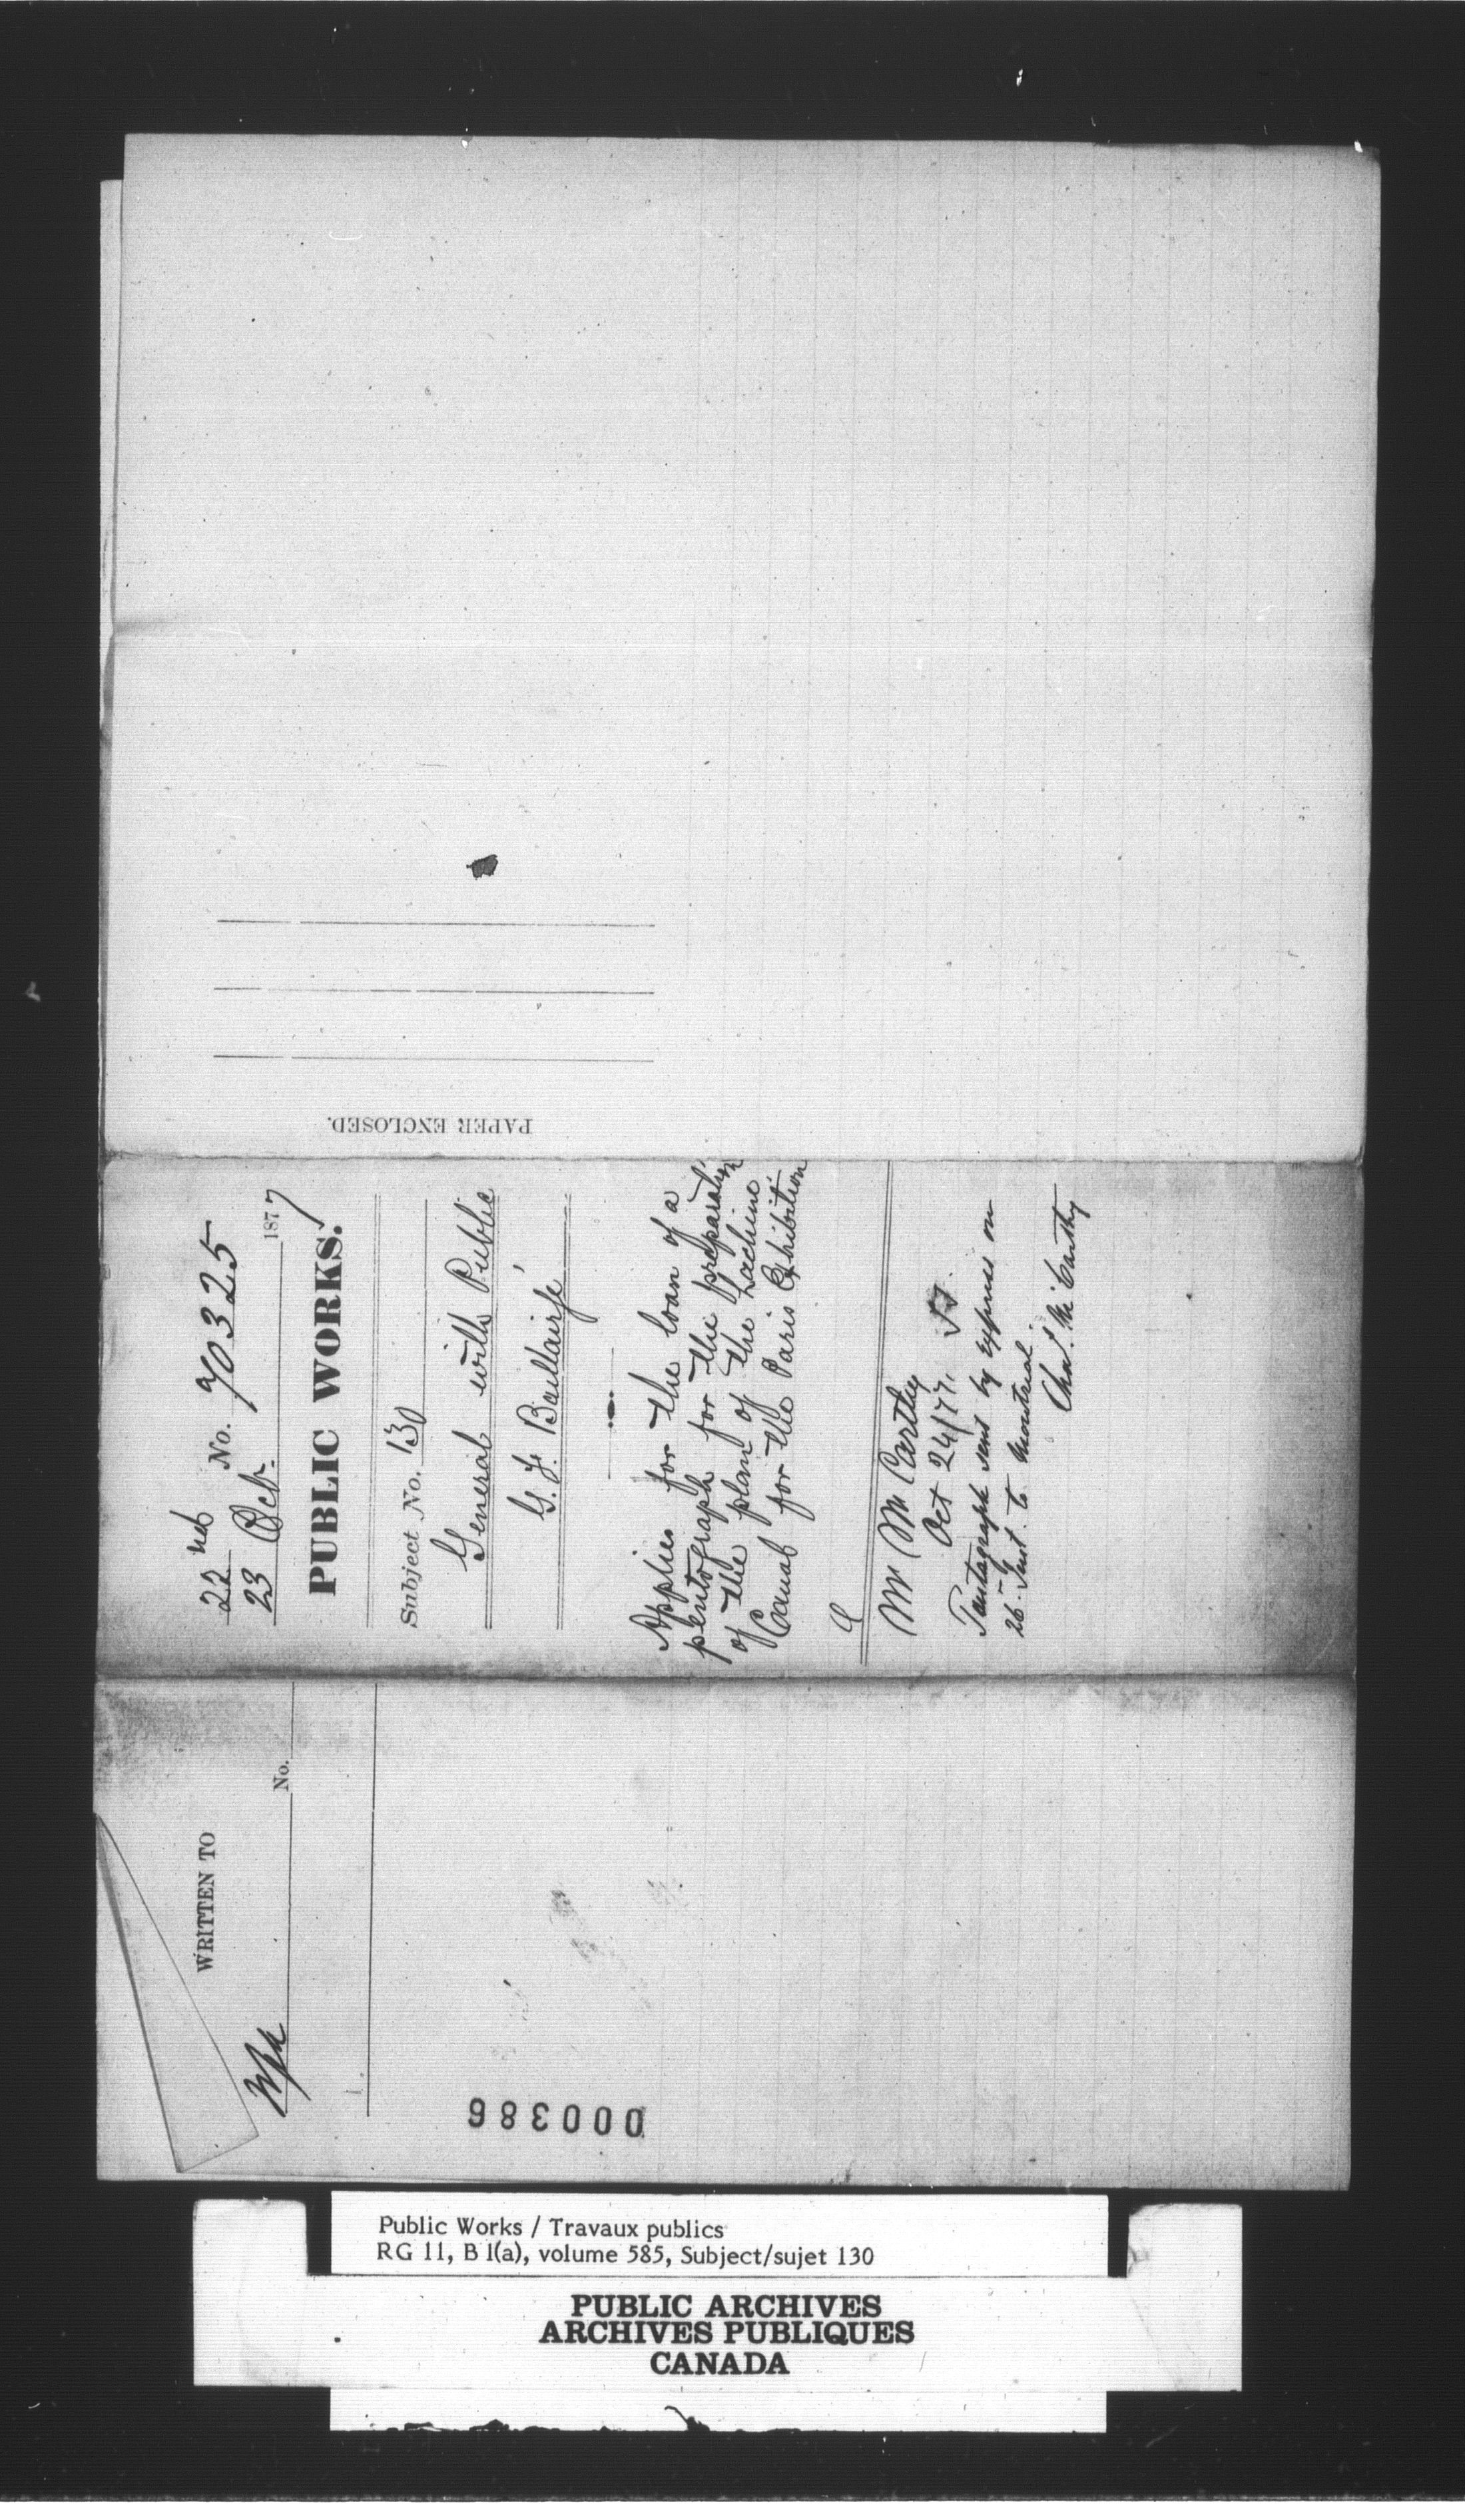 22nd No. 70325
23 Oct. 1877
PUBLIC WORKS.
Subject No. 130
General with Public
G. F. Baillairgé
Applies for the loan of a
pentograph for the preparation
of the plan of the Lachine
Canal for the Paris Exhibition
Mr McCarthy
Oct 24/77.
Pantagraph sent by express on
26 Inst. to Montreal.
Chas. McCarthy
PAPER ENCLOSED.
WRITTEN TO
No.
000386
Public Works / Travaux publics
RG 11, B 1(a), volume 585, Subject/sujet 130
PUBLIC ARCHIVES
ARCHIVES PUBLIQUES
CANADA